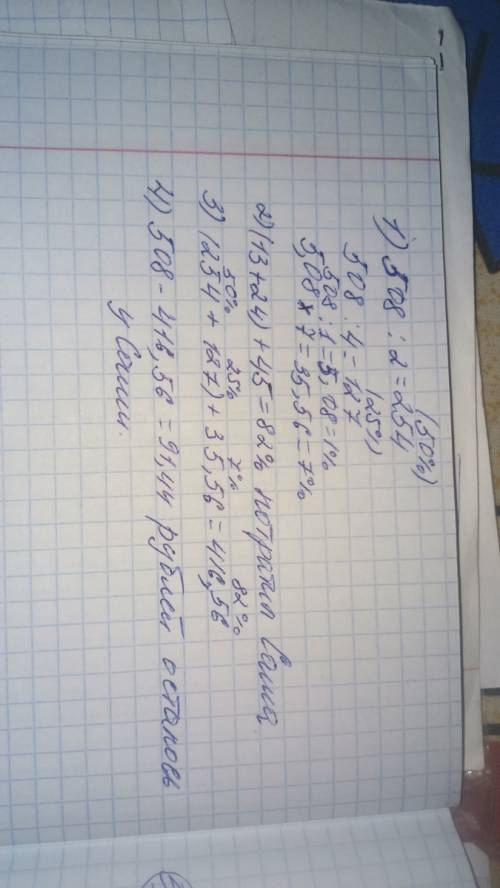 (50%)
1) 508 : 2 = 254
(25%)
508 : 4 = 127
508 : 1 = 5,08 = 1%
5,08 × 7 = 35,56 = 7%
2) (13 + 24) + 45 = 82% потратил Саша.
50% 25% 7% 82%
3) (254 + 127) + 35,56 = 416,56
4) 508 - 416,56 = 91,44 рублей осталось
у Саши.